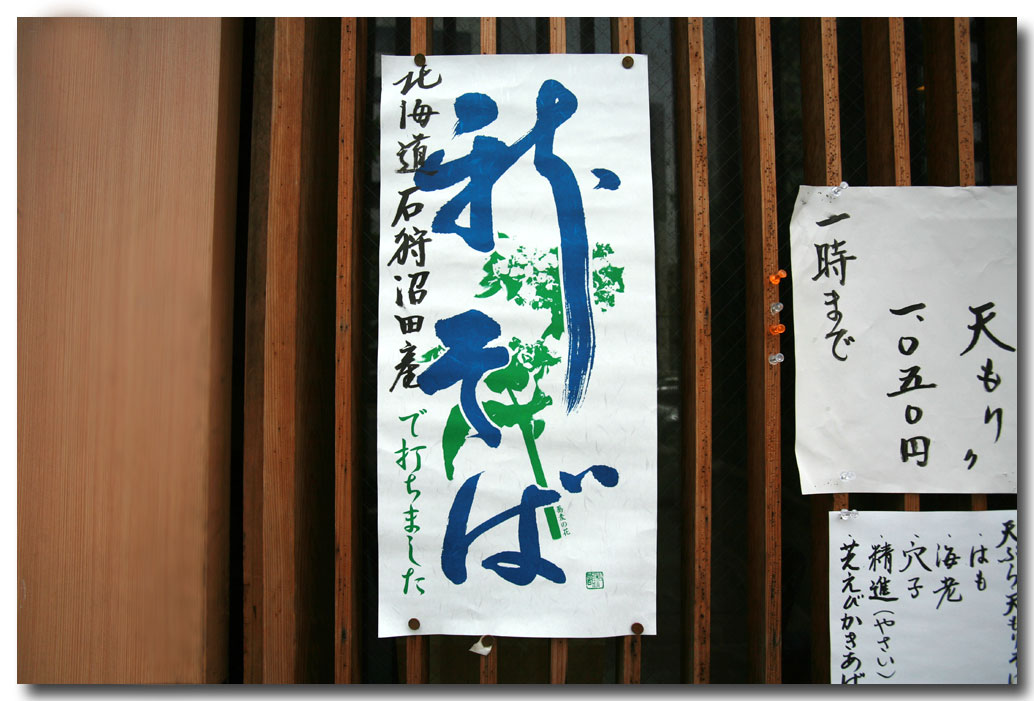 新そば
北海道石狩沼田産で打ちました
蕎麦の花
天もり
一、〇五〇円
一時まで
天ぷら天もりそば
・はも
・海老
・穴子
・精進(やさい)
・芝えびかきあげ